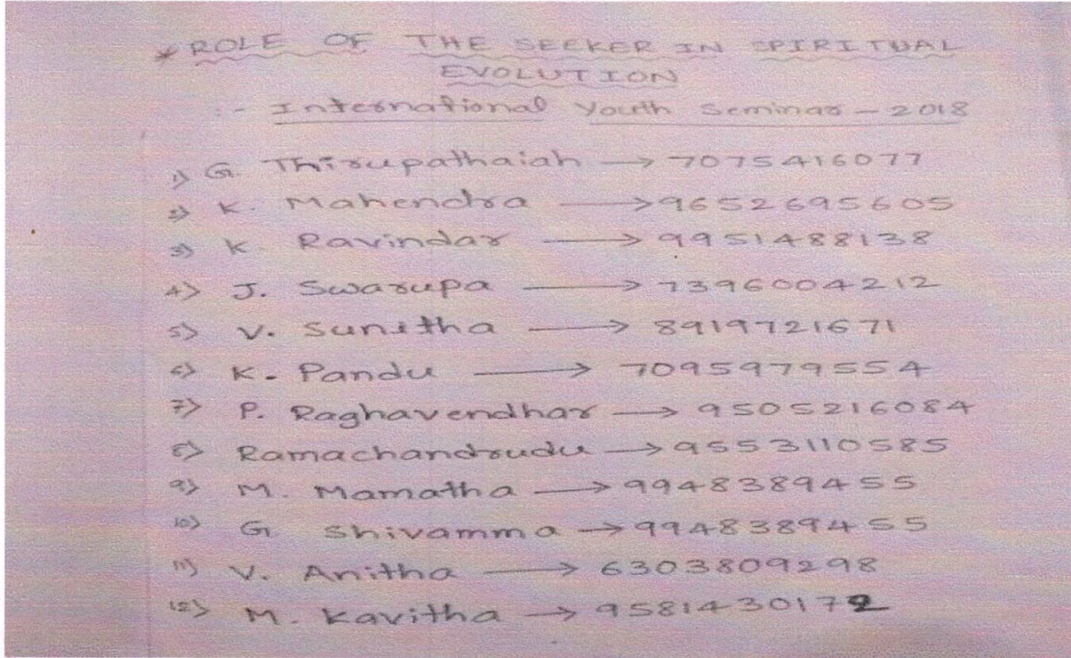 * ROLE OF THE SEEKER IN SPIRITUAL
EVOLUTION
:- International Youth Seminar - 2018
1) G. Thirupathaiah → 7075416077
2) K. Mahendra → 9652695605
3) K Ravindar → 9951488138
4) J. Swarupa → 7396004212
5) V. Sunitha → 8919721671
6) K. Pandu → 7095979554
7) P. Raghavendhar → 9505216084
8) Ramachandrudu → 9553110585
9) M. Mamatha → 9948389455
10) G Shivamma → 9948389455
11) V. Anitha → 6303809298
12) M. Kavitha → 9581430172